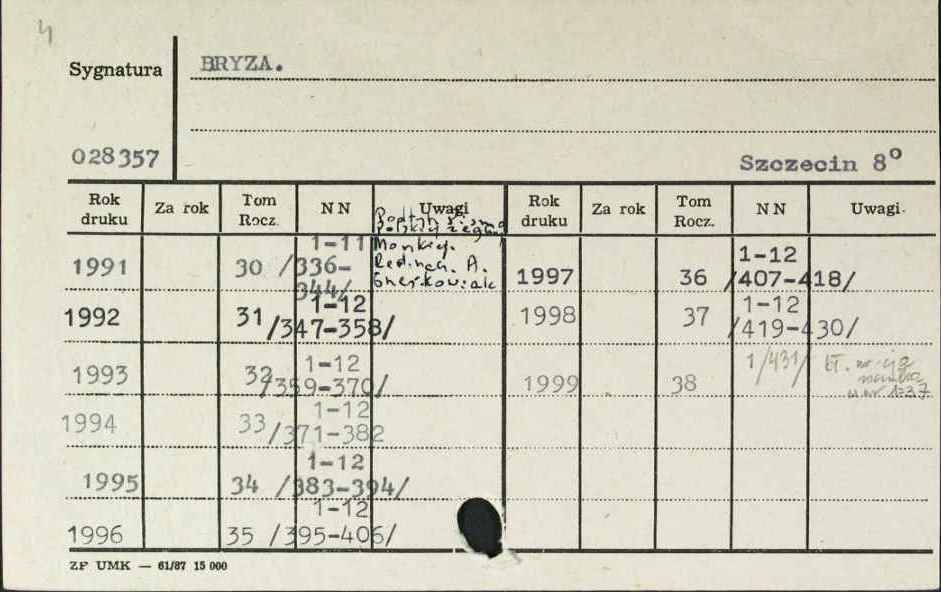 4
Sygnatura BRYZA.
028357 Szczecin 8º
Rok druku Za rok Tom Rocz. NN Uwagi Rok druku Za rok Tom Rocz. NN Uwagi
1991 30 1-11 /336-344/
Redman. A.
1992 31 1-12 /347-358/
1993 32 1-12 /359-370/
1994 33 1-12 /371-382
1995 34 1-12 /383-394/
1996 35 1-12 /395-406/
1997 36 1-12 /407-418/
1998 37 1-12 /419-430/
1999 38 1/431/
ZP UMK — 61/87 15 000